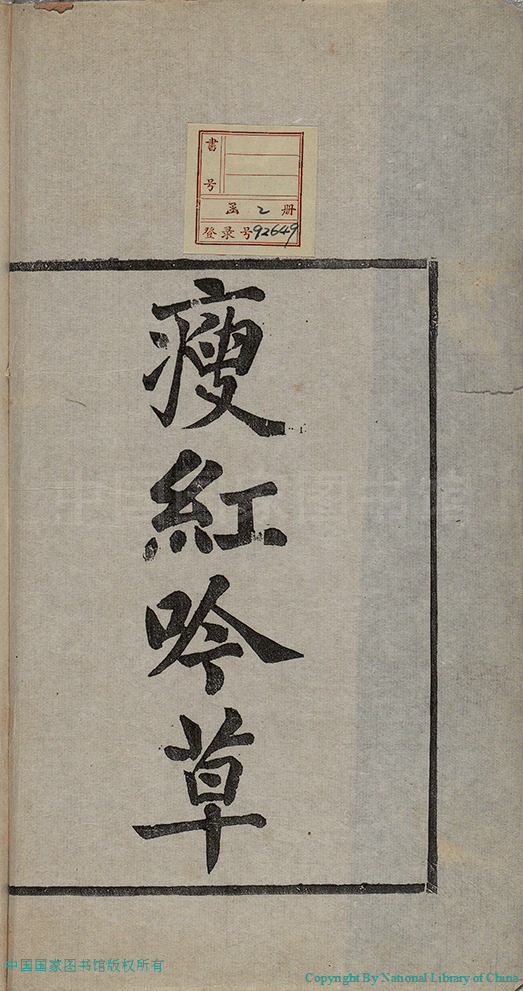 書号
函 2 册
登录号 92649
瘦紅吟草
中国国家图书馆
中国国家图书馆版权所有
Copyright By National Library of China